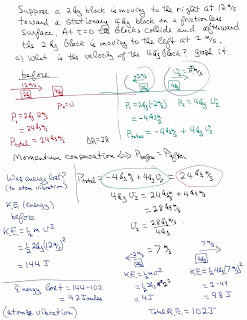 Suppose a 2kg block is moving to the right at 12 m/s
toward a stationary 4kg block on a frictionless
surface. At t=0 the blocks collide and afterward
the 2kg block is moving to the left at 2 m/s.
a) What is the velocity of the 4kg block? graph it.
before
12 m/s
2kg
4kg
-2 m/s
2kg
4kg
P₁=2kg 12 m/s
P₂=0
= 24 kg m/s
P total = 24 kg m/s
P₁=2kg(-2 m/s)
= -4 kg m/s
P₂=4kg U₂
P total = -4 kg m/s + 4kg U₂
Momentum conservation
P before = P after
P total = -4 kg m/s + 4kg U₂ = 24 kg m/s
4kg U₂ = 24 kg m/s + 4 kg m/s
= 28 kg m/s
U₂ = 28 kg m/s
4kg
= 7 m/s
Was energy lost?
(to atom vibration)
KE (energy)
before
KE = ½mv²
= ½ 2kg (12 m/s)²
= 144 J
-2 m/s
2kg
KE = ½mv²
= 4J
7 m/s
4kg
KE = ½ 4kg (7 m/s)²
= 2·49
= 98J
Total KE = 102J
Energy lost = 144-102
= 42 Joules
(atomic vibration)